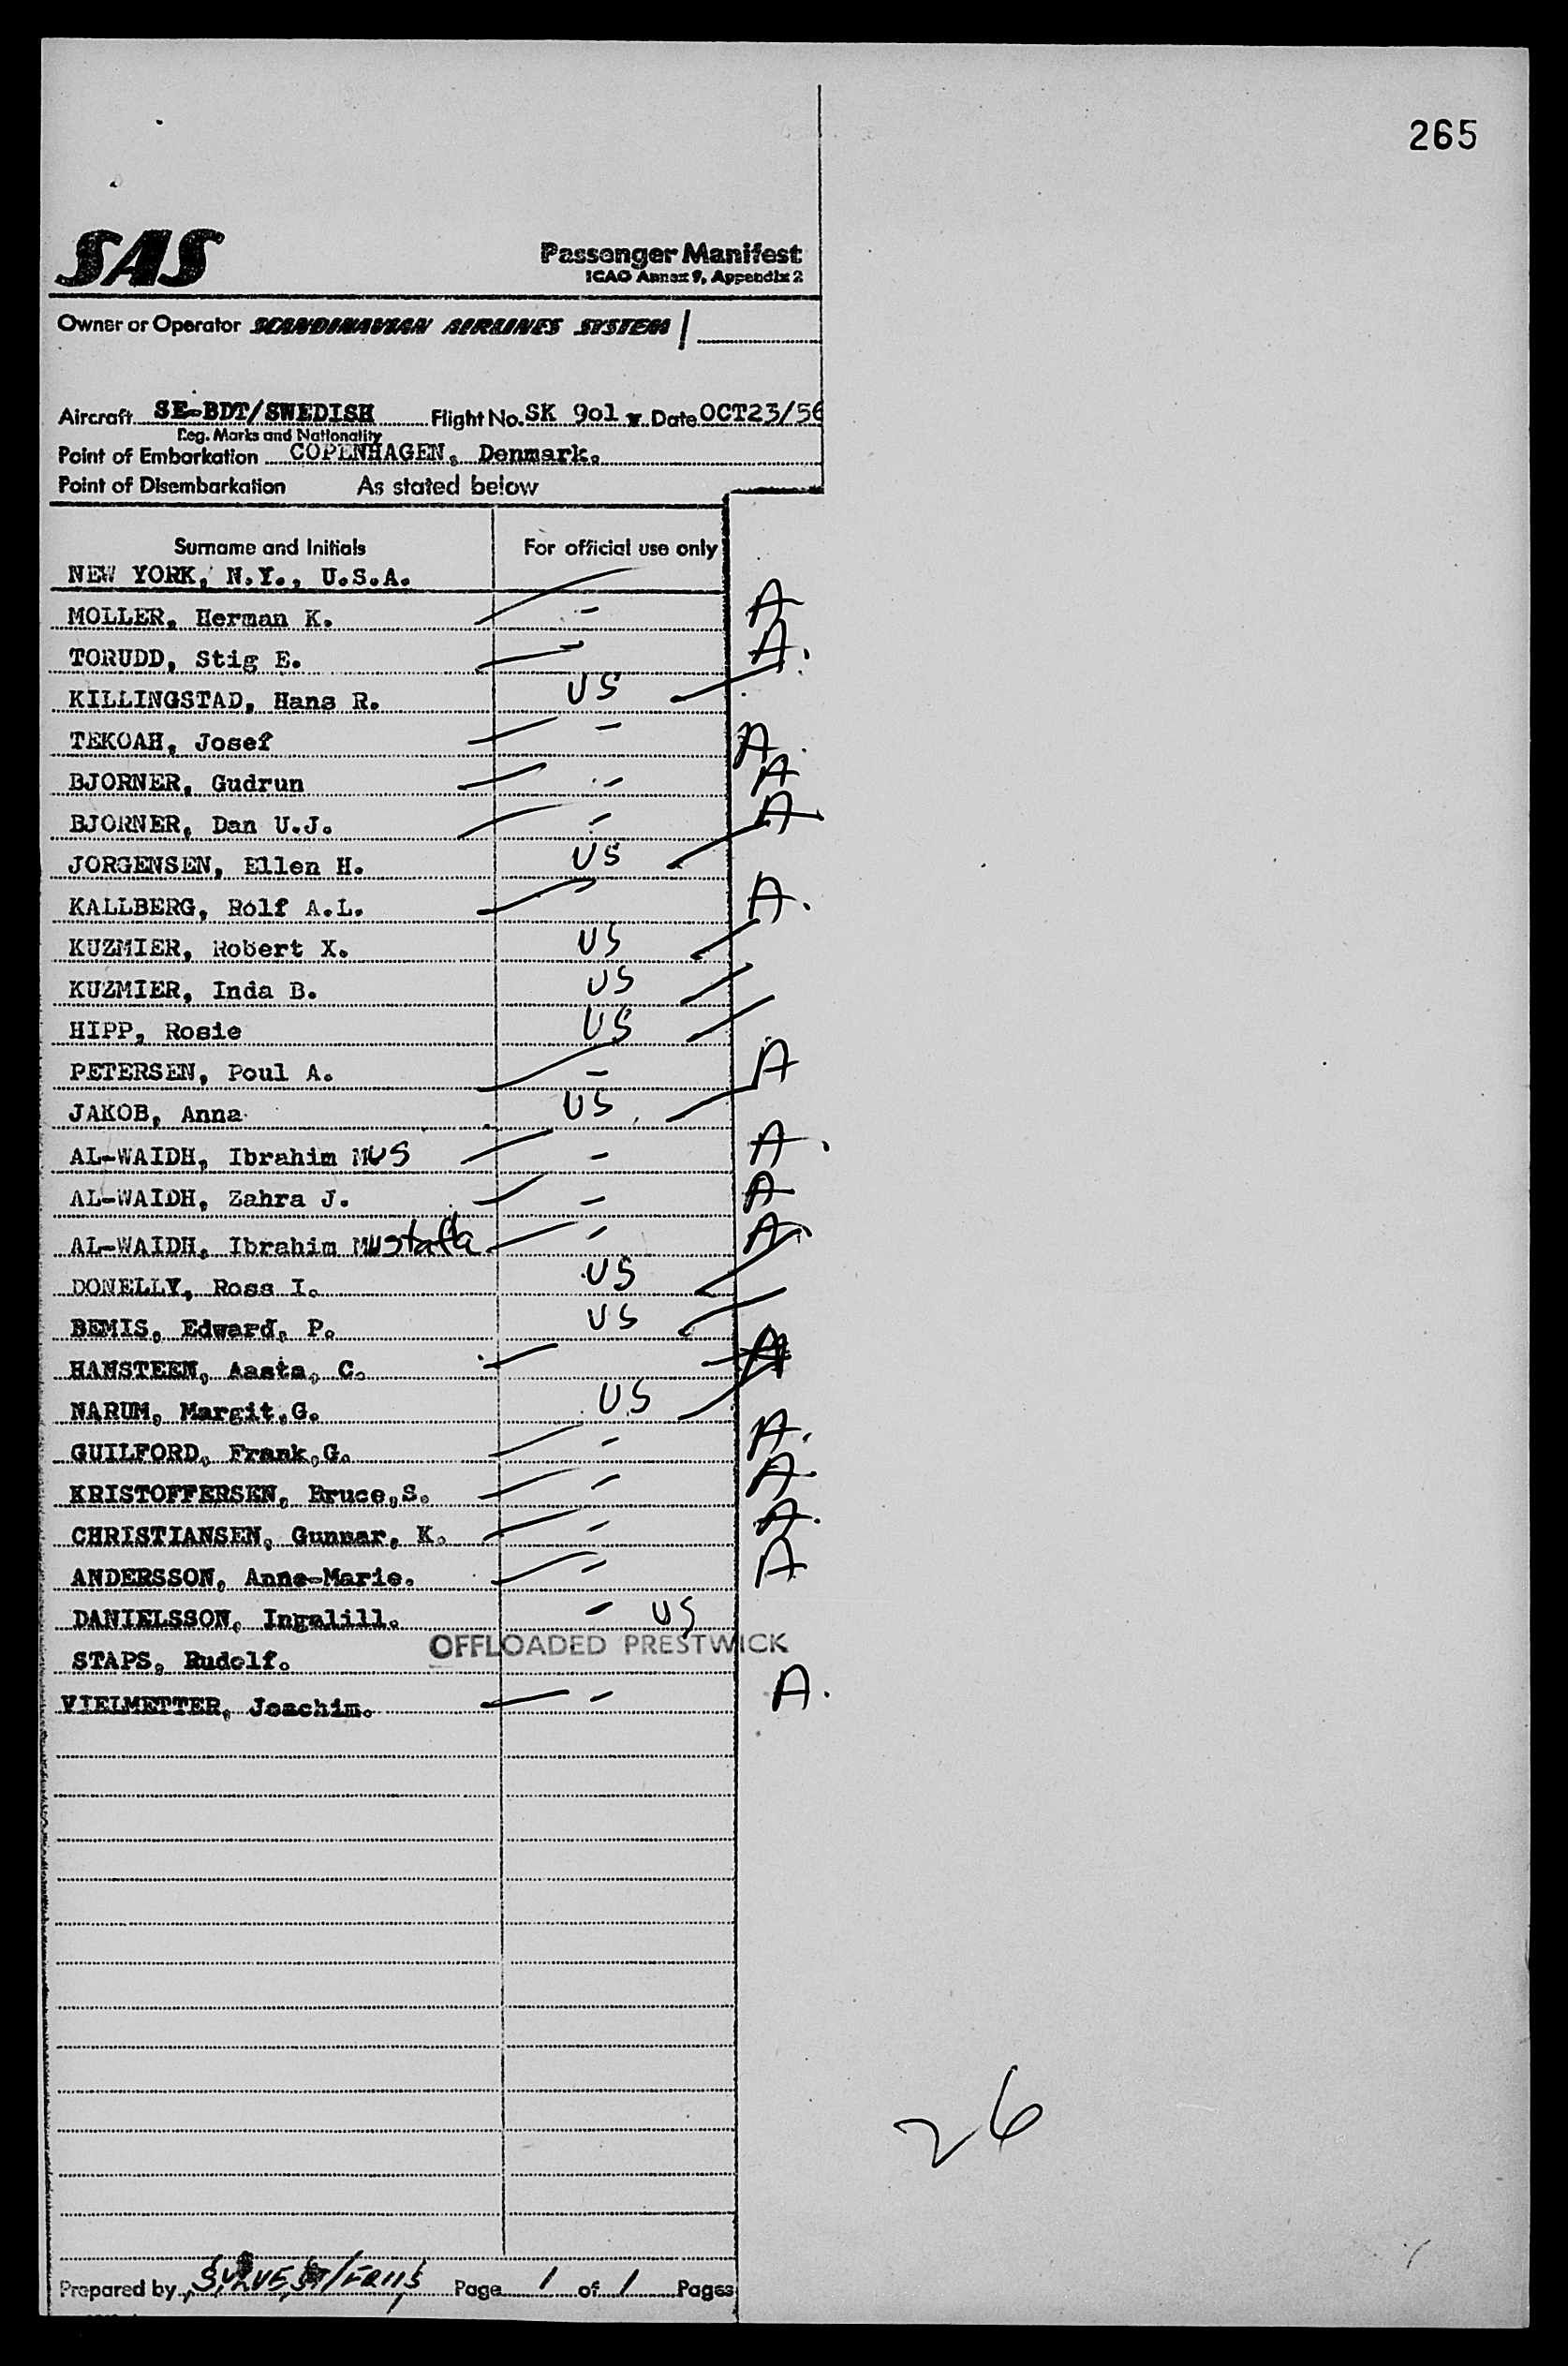 265
SAS Passenger Manifest
ICAO Annex 9, Appendix 2
Owner or Operator SCANDINAVIAN AIRLINES SYSTEM /
Aircraft SE-BDT/SWEDISH Flight No. SK 901 Date OCT23/56
Reg. Marks and Nationality
Point of Embarkation COPENHAGEN, Denmark.
Point of Disembarkation As stated below
Surname and Initials For official use only
NEW YORK, N.Y., U.S.A.
MOLLER, Herman K. - A
TORUDD, Stig E. - A.
KILLINGSTAD, Hans R. US
TEKOAH, Josef - A
BJORNER, Gudrun - A
BJORNER, Dan U.J. - A
JORGENSEN, Ellen H. US
KALLBERG, Rolf A.L. - A.
KUZMIER, Robert X. US
KUZMIER, Inda B. US
HIPP, Rosie US
PETERSEN, Poul A. - A
JAKOB, Anna US
AL-WAIDH, Ibrahim MUS - A.
AL-WAIDH, Zahra J. - A
AL-WAIDH, Ibrahim Mustafa - A
DONELLY, Ross I. US
BEMIS, Edward, P. US
HANSTEEN, Aasta, C. A
NARUM, Margit,G. US
GUILFORD, Frank,G. - A.
KRISTOFFERSEN, Bruce,S. - A
CHRISTIANSEN, Gunnar, K. - A.
ANDERSSON, Anne-Marie. - A
DANIELSSON, Ingalill. - US
OFFLOADED PRESTWICK
STAPS, Rudolf.
VIELMETTER, Joachim. - A.
26
Prepared by Page 1 of 1 Pages